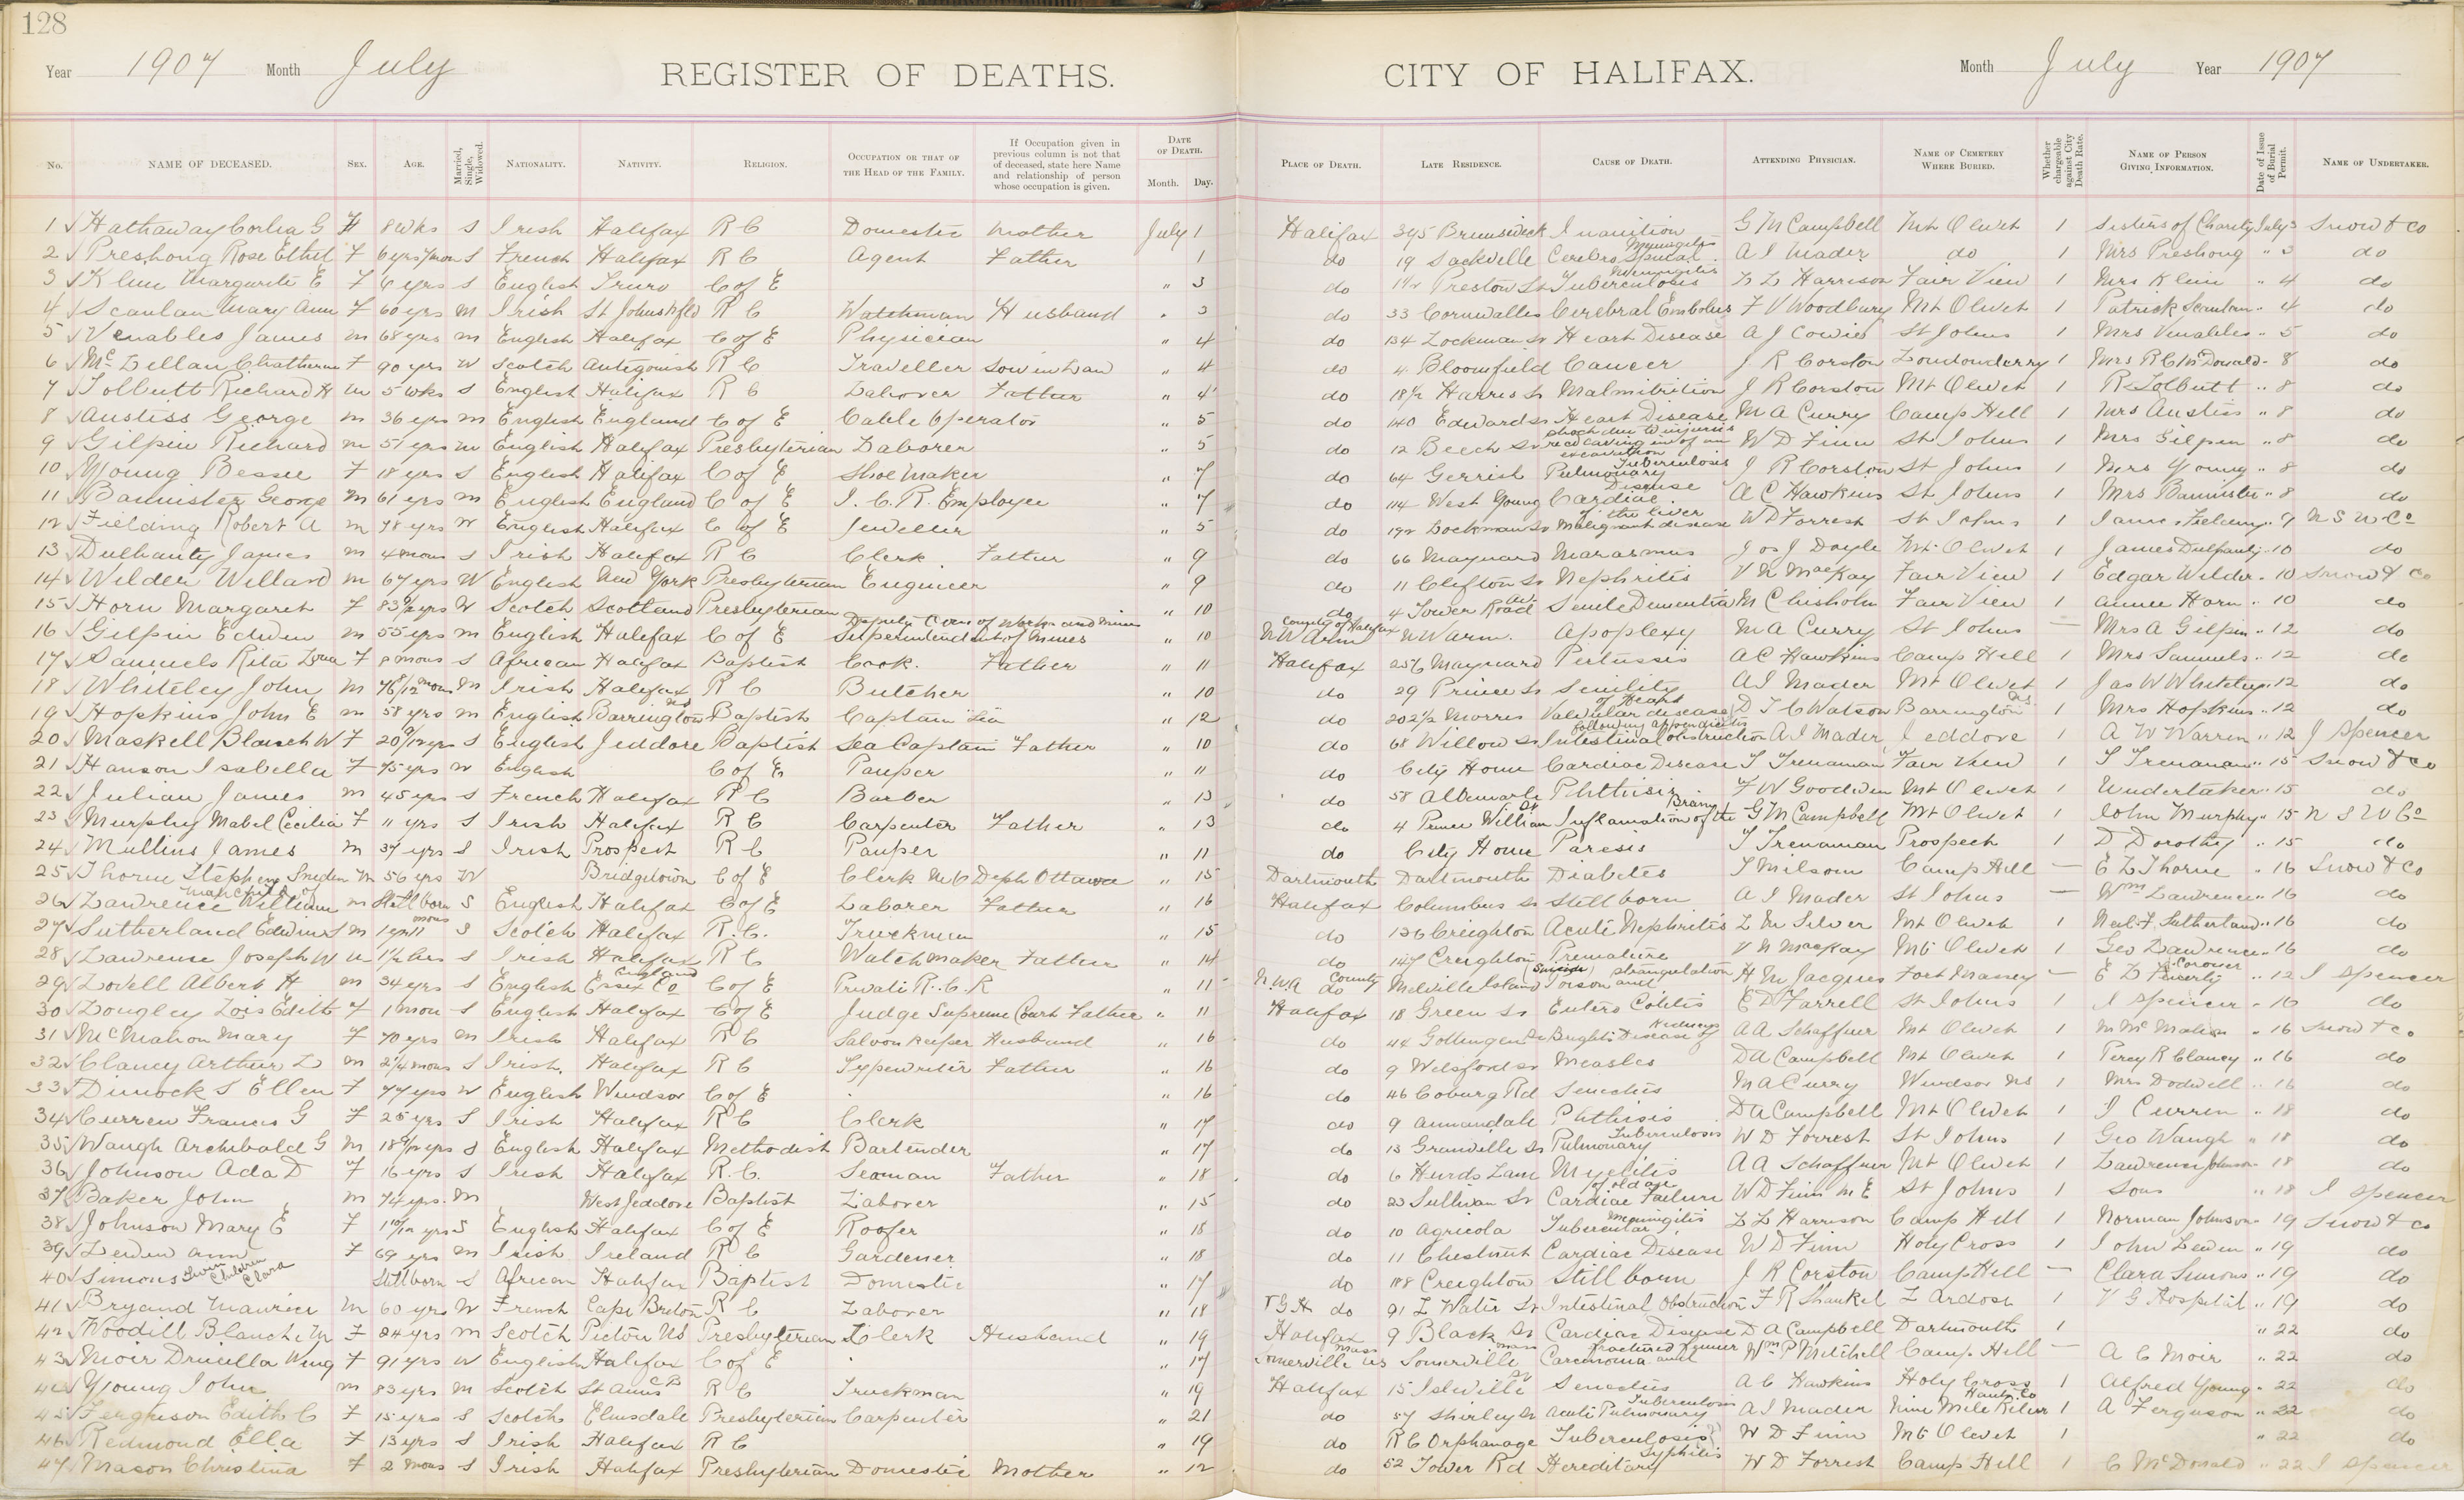 128
Year 1907 Month July REGISTER OF DEATHS. CITY OF HALIFAX. Month July Year 1907
No. NAME OF DECEASED. SEX. AGE. Married, Single, Widowed. NATIONALITY. NATIVITY. RELIGION. OCCUPATION OR THAT OF THE HEAD OF THE FAMILY. If Occupation given in previous column is not that of deceased, state here Name and relationship of person whose occupation is given. DATE OF DEATH. Month. Day. PLACE OF DEATH. LATE RESIDENCE. CAUSE OF DEATH. ATTENDING PHYSICIAN. NAME OF CEMETERY WHERE BURIED. Whether chargeable against City Death Rate. NAME OF PERSON GIVING INFORMATION. Date of Issue of Burial Permit. NAME OF UNDERTAKER.
1 Hathaway G F 8 wks S Irish Halifax R C Domestic Mother July 1 Halifax 395 Brunswick Inanition G M Campbell Mt Olivet 1 Sisters of Charity July 3 Snow & Co
2 Preshong Rose Ethel F 6 yrs 7 mon S French Halifax R C Agent Father 1 do 19 Sackville Cerebro Spinal Meningitis A I Mader do 1 Mrs Preshong " 3 do
3 Klein Margarite E F 6 yrs S English Truro C of E " 3 do Preston St Tuberculosis Meningitis L L Harrison Fair View 1 Mrs Klein " 4 do
4 Scanlan Mary Ann F 60 yrs M Irish St Johns Nfld R C Watchman Husband " 3 do 33 Cornwallis Cerebral Embolus F V Woodbury Mt Olivet 1 Patrick Scanlan " 4 do
5 Venables James M 68 yrs M English Halifax C of E Physician " 4 do 134 Lockman St Heart Disease A J Cowie St Johns 1 Mrs Venables " 5 do
6 McLellan Chatherine F 90 yrs W Scotch Antigonish R C Traveller Son in Law " 4 do 4 Bloomfield Cancer J R Corston Londonderry 1 Mrs R C McDonald " 8 do
7 Tolbutt Richard H M 5 wks S English Halifax R C Laborer Father " 4 do 18½ Harris St Malnutrition J R Corston Mt Olivet 1 R Tolbutt " 8 do
8 Anstiss George M 36 yrs M English England C of E Cable Operator " 5 do 140 Edward St Heart Disease M A Curry Camp Hill 1 Mrs Anstiss " 8 do
9 Gilpin Richard M 51 yrs M English Halifax Presbyterian Laborer " 5 do 12 Beech St shock due to injuries recd caving in of an excavation W D Finn St Johns 1 Mrs Gilpin " 8 do
10 Young Bessie F 18 yrs S English Halifax C of E Shoe Maker " 7 do 64 Gerrish Pulmonary Tuberculosis J R Corston St Johns 1 Mrs Young " 8 do
11 Bannister George M 61 yrs M English England C of E I. C. R. Employee " 7 do 114 West Young Cardiac Disease A C Hawkins St Johns 1 Mrs Bannister " 8 do
12 Fielding Robert A M 78 yrs W English Halifax C of E Jeweller " 5 do 192 Lockman St Malignant disease of the liver W D Forrest St Johns 1 James Fielding " 9 N S U Co
13 Dulhanty James M 4 mons S Irish Halifax R C Clerk Father " 9 do 66 Maynard Marasmus Jos J Doyle Mt Olivet 1 James Dulhanty " 10 do
14 Wilder Willard M 67 yrs W English New York Presbyterian Engineer " 9 do 11 Clifton St Nephritis V N MacKay Fair View 1 Edgar Wilder " 10 Snow & Co
15 Horn Margaret F 83 yrs W Scotch Scotland Presbyterian " 10 do 4 Tower Road Senile Dementia M Chisholm Fair View 1 Annie Horn " 10 do
16 Gilpin Edwin M 55 yrs M English Halifax C of E Deputy Com of Works and Mines Superintendent of Mines " 10 County of Halifax N W Arm N W Arm. Apoplexy M A Curry St Johns — Mrs A Gilpin " 12 do
17 Samuels Rita F 8 mons S African Halifax Baptist Cook. Father " 11 Halifax 256 Maynard Pertussis A C Hawkins Camp Hill 1 Mrs Samuels " 12 do
18 Whiteley John M 76 8/12 M Irish Halifax R C Butcher " 10 do 29 Prince St Senility A I Mader Mt Olivet 1 Jas W Whiteley " 12 do
19 Hopkins John E M 58 yrs M English Barrington NS Baptist Captain Sea " 12 do 202½ Morris Valvular disease of Heart D T C Watson Barrington NS 1 Mrs Hopkins " 12 do
20 Maskell Blanch W F 20 yrs S English Jeddore Baptist Sea Captain Father " 10 do 68 Willow St Intestinal obstruction following appendicitis A I Mader Jeddore 1 A W Warren " 12 J Spencer
21 Hanson Isabella F 75 yrs W English C of E Pauper " 11 do City Home Cardiac Disease T Trenaman Fair View 1 T Trenaman " 15 Snow & Co
22 Julian James M 45 yrs S French Halifax R C Barber " 13 do 58 Albemarle Phthisis F W Goodwin Mt Olivet 1 Undertaker " 15 do
23 Murphy Mabel Cecilia F 11 yrs S Irish Halifax R C Carpenter Father " 13 do 4 Prince William St Inflamation of the Brain G M Campbell Mt Olivet 1 John Murphy " 15 N S U Co
24 Mullins James M 37 yrs S Irish Prospect R C Pauper " 11 do City Home Paresis T Trenaman Prospect 1 D Dorothy " 15 do
25 Thorne Stephen Sneden M 56 yrs W Bridgetown C of E Clerk Deph Ottawa " 15 Dartmouth Dartmouth Diabetes T Milsom Camp Hill — E L Thorne " 16 Snow & Co
26 Lawrence male child of William M Still born S English Halifax C of E Laborer Father " 16 Halifax Columbus St Still born A I Mader St Johns — Wm Lawrence " 16 do
27 Sutherland Edwin S M 1 yr 11 mons S Scotch Halifax R. C. Truckman " 15 do 126 Creighton Acute Nephritis L M Silver Mt Olivet 1 Neil F Sutherland " 16 do
28 Lawrence Joseph W M 1½ hrs S Irish Halifax R C Watchmaker Father " 14 do 147 Creighton Premature V N MacKay Mt Olivet 1 Geo Lawrence " 16 do
29 Lovell Albert H M 34 yrs S English Essex Co England C of E Private R. C. R " 11 N.W.A County do Melville Island (Suicide) Poison and strangulation H M Jacques Fort Massey — Coroner " 12 J Spencer
30 Longley Lois Edith F 1 mon S English Halifax C of E Judge Supreme Court Father " 11 Halifax 18 Green St Entero Colitis E D Farrell St Johns 1 J Spencer " 16 do
31 McMahon Mary F 70 yrs M Irish Halifax R C Saloon Keeper Husband " 16 do 44 Gottingen St Brights Disease of Kidneys A A Schaffner Mt Olivet 1 M McMahon " 16 Snow & Co
32 Clancy Arthur L M 2¼ mons S Irish. Halifax R C Typewriter Father " 16 do 9 Welsford St Measles D A Campbell Mt Olivet 1 Percy R Clancy " 16 do
33 Dimock S Ellen F 77 yrs W English Windsor C of E " 16 do 46 Coburg Rd Senectus M A Curry Windsor NS 1 Mrs Dodwell " 16 do
34 Curren Francis G F 25 yrs S Irish Halifax R C Clerk " 17 do 9 Annandale Phthisis D A Campbell Mt Olivet 1 J Curren " 18 do
35 Waugh Archibald G M 18 yrs S English Halifax Methodist Bartender " 17 do 13 Granville St Pulmonary Tuberculosis W D Forrest St Johns 1 Geo Waugh " 18 do
36 Johnson Ada D F 16 yrs S Irish Halifax R. C. Seaman Father " 18 do 6 Hurds Lane Myelitis A A Schaffner Mt Olivet 1 Lawrence Johnson " 18 do
37 Baker John M 74 yrs. M West Jeddore Baptist Laborer " 15 do 23 Sullivan St Cardiac Failure of old age W D Finn M E St Johns 1 Sons " 18 J Spencer
38 Johnson Mary E F 1 10/12 yrs S English Halifax C of E Roofer " 18 do 10 Agricola Tubercular Meningitis L L Harrison Camp Hill 1 Norman Johnson " 19 Snow & Co
39 Lewen Ann F 69 yrs M Irish Ireland R C Gardener " 18 do 11 Chestnut Cardiac Disease W D Finn Holy Cross 1 John Lewen " 19 do
40 Simons Twin Children Clara Still born S African Halifax Baptist Domestic " 17 do 118 Creighton Still born J R Corston Camp Hill — Clara Simons " 19 do
41 Bryand Maurice M 60 yrs W French Cape Breton R C Laborer " 18 V G H do 91 L Water St Intestinal Obstruction F R Shankel L Ardose 1 V G Hospital " 19 do
42 Woodill Blanche M F 24 yrs M Scotch Pictou NS Presbyterian Clerk Husband " 19 Halifax 9 Black St Cardiac Disease D A Campbell Dartmouth 1 " 22 do
43 Moir Drucilla Wing F 91 yrs W English Halifax C of E " 17 Somerville Mass US Somerville Mass Carcinoma and fractured femur Wm P Mitchell Camp Hill — A C Moir " 22 do
44 Young John M 83 yrs M Scotch St Anns C B R C Truckman " 19 Halifax 15 Isleville St Senectus A C Hawkins Holy Cross 1 Alfred Young " 22 do
45 Ferguson Edith C F 15 yrs S Scotch Elmsdale Presbyterian Carpenter " 21 do 57 Shirley St Acute Pulmonary Tuberculosis A I Mader Nine Mile River Hants Co 1 A Ferguson " 22 do
46 Redmond Ella F 13 yrs S Irish Halifax R C " 19 do R C Orphanage Tuberculosis W D Finn Mt Olivet 1 " 22 do
47 Mason Christina F 2 mons S Irish Halifax Presbyterian Domestic Mother " 12 do 52 Tower Rd Hereditary Syphilis W D Forrest Camp Hill 1 C McDonald " 22 J Spencer